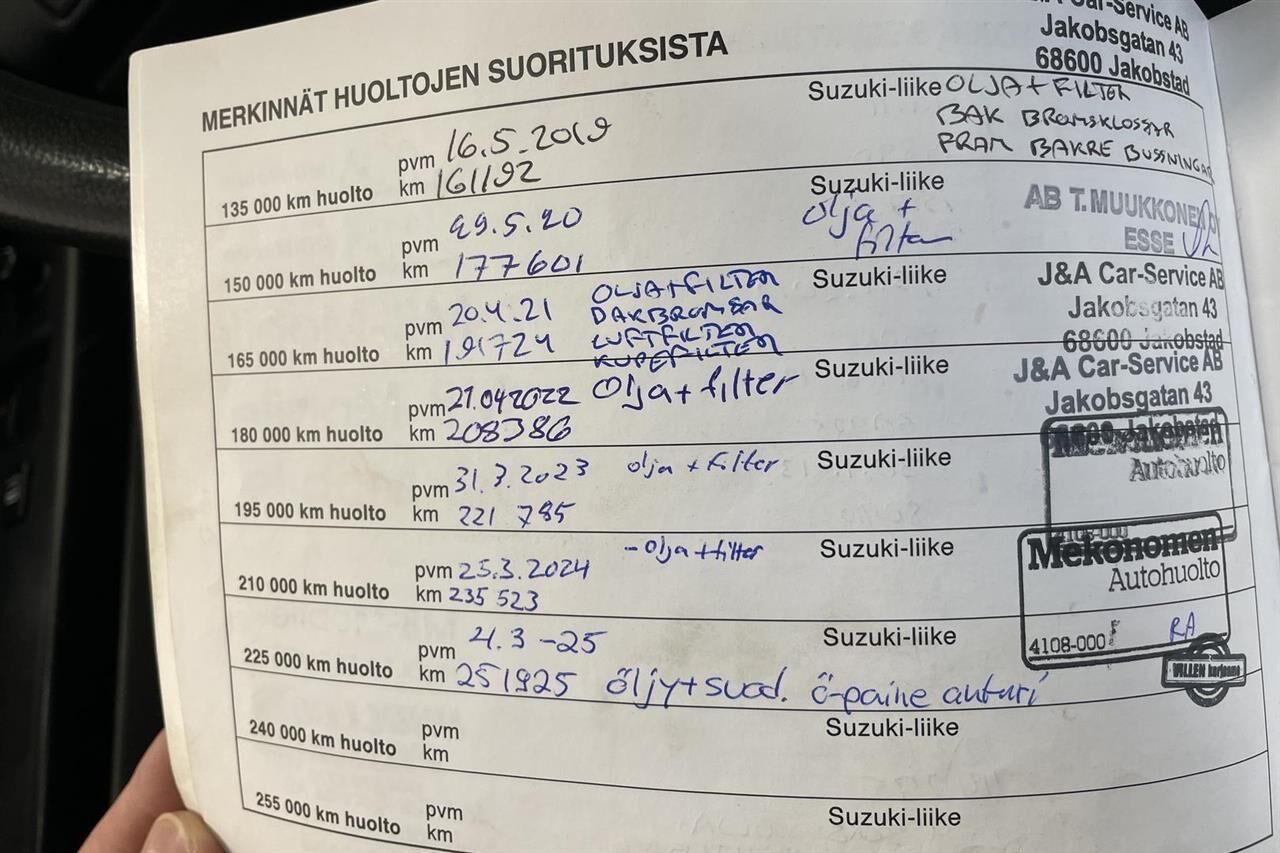 MERKINNÄT HUOLTOJEN SUORITUKSISTA
Car-Service AB
Jakobsgatan 43
68600 Jakobstad
135 000 km huolto
pvm 16.5.2019
km 161192
Suzuki-liike OLJA+FILTER
BAK BROMSKLOSSAR
FRAM BAKRE BUSSNINGAR
150 000 km huolto
pvm 29.5.20
km 177601
Suzuki-liike
olja +
filter
AB T.MUUKKONEN
ESSE
165 000 km huolto
pvm 20.4.21
km 191724
OLJA+FILTER
BAKBROMSAR
LUFTFILTER
KUPEFILTER
Suzuki-liike
J&A Car-Service AB
Jakobsgatan 43
68600 Jakobstad
180 000 km huolto
pvm 21.042022
km 208386
Olja+filter
Suzuki-liike
J&A Car-Service AB
Jakobsgatan 43
Jakobstad
195 000 km huolto
pvm 31.3.2023
km 221 785
olja + filter
Suzuki-liike
Autohuolto
210 000 km huolto
pvm 25.3.2024
km 235 523
-olja+filter
Suzuki-liike
Mekonomen
Autohuolto
4108-000
RA
225 000 km huolto
pvm 4.3-25
km 251925 öljy+suod. ö-paine anturi
Suzuki-liike
VILLEN korjaamo
240 000 km huolto
pvm
km
Suzuki-liike
255 000 km huolto
pvm
km
Suzuki-liike